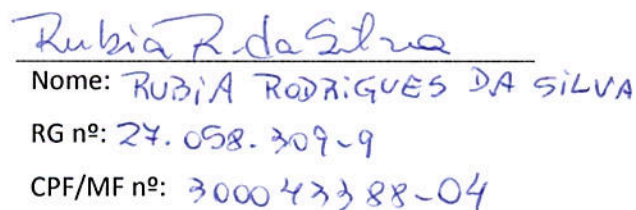 Rubia R. da Silva
Nome: RUBiA RODRiGUES DA SiLVA
RG nº: 27.058.309-9
CPF/MF nº: 300043388-04